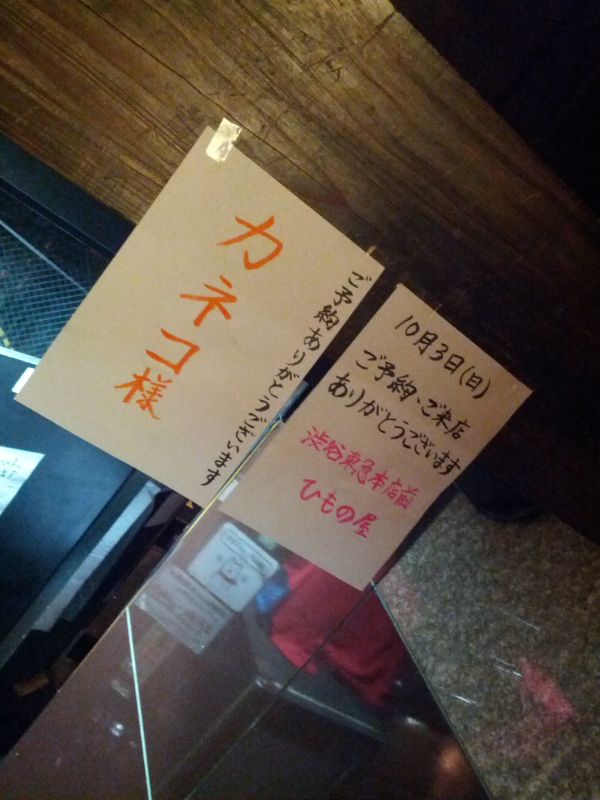 ご予約ありがとうございます
カネコ様
10月3日(日)
ご予約、ご来店
ありがとうございます
渋谷東急本店前
ひもの屋